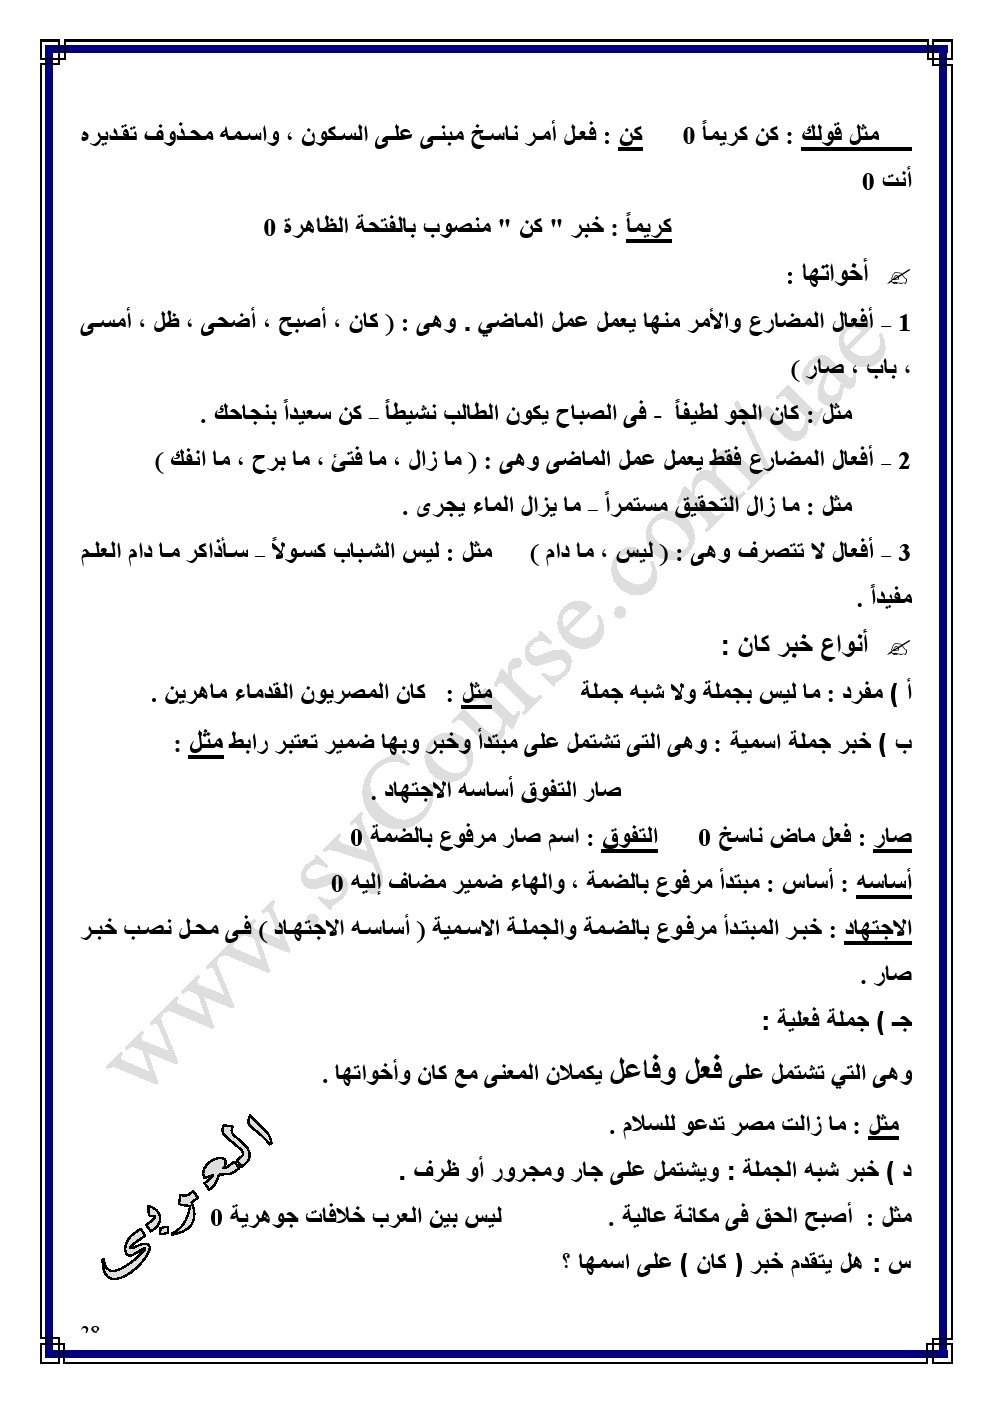 مثل قولك : كن كريماً 0 كن : فعل أمر ناسخ مبنى على السكون ، واسمه محذوف تقديره
أنت 0
كريماً : خبر " كن " منصوب بالفتحة الظاهرة 0
أخواتها :
1 – أفعال المضارع والأمر منها يعمل عمل الماضي . وهى : ( كان ، أصبح ، أضحى ، ظل ، أمسى
، باب ، صار )
مثل : كان الجو لطيفاً - فى الصباح يكون الطالب نشيطاً – كن سعيداً بنجاحك .
2 – أفعال المضارع فقط يعمل عمل الماضى وهى : ( ما زال ، ما فتئ ، ما برح ، ما انفك )
مثل : ما زال التحقيق مستمراً – ما يزال الماء يجرى .
3 – أفعال لا تتصرف وهى : ( ليس ، ما دام ) مثل : ليس الشباب كسولاً – سأذاكر ما دام العلم
مفيداً .
أنواع خبر كان :
أ ) مفرد : ما ليس بجملة ولا شبه جملة مثل : كان المصريون القدماء ماهرين .
ب ) خبر جملة اسمية : وهى التى تشتمل على مبتدأ وخبر وبها ضمير تعتبر رابط مثل :
صار التفوق أساسه الاجتهاد .
صار : فعل ماض ناسخ 0 التفوق : اسم صار مرفوع بالضمة 0
أساسه : أساس : مبتدأ مرفوع بالضمة ، والهاء ضمير مضاف إليه 0
الاجتهاد : خبر المبتدأ مرفوع بالضمة والجملة الاسمية ( أساسه الاجتهاد ) فى محل نصب خبر
صار .
جـ ) جملة فعلية :
وهى التي تشتمل على فعل وفاعل يكملان المعنى مع كان وأخواتها .
مثل : ما زالت مصر تدعو للسلام .
د ) خبر شبه الجملة : ويشتمل على جار ومجرور أو ظرف .
مثل : أصبح الحق فى مكانة عالية . ليس بين العرب خلافات جوهرية 0
س : هل يتقدم خبر ( كان ) على اسمها ؟
العربى
www.syCourse.com/uae